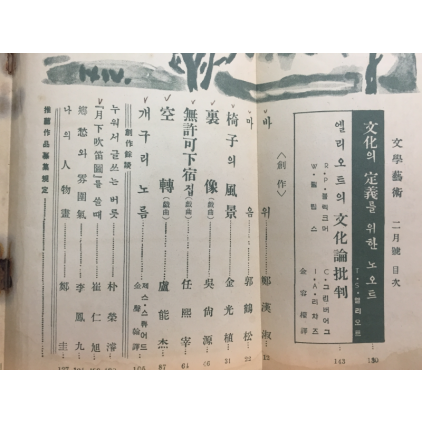 文學藝術 二月號 目次
文化의 定義를 위한 노오트
T·S·엘리오트
엘리오트의 文化論批判
143
金容權 譯
<創作>
바위 鄭漢淑 12
마음 郭鶴松 22
椅子의 風景 金光植 31
裏像(戱曲) 吳尙源
無許可下宿집(戱曲) 任熙宰 64
空轉(戱曲) 盧能杰 87
개구리 노름 제임스·스튜어드
創作餘談
누워서 글쓰는 버릇 朴榮濬
「月下吹笛圖」를 쓸때 崔仁旭
鄕愁와 雰圍氣 李鳳九
나의 人物畫 鄭圭
推薦作品募集規定